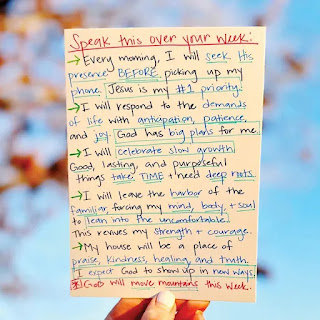 Speak this over your week:
→ Every morning, I will seek His
presence BEFORE picking up my
phone. Jesus is my #1 priority.
→ I will respond to the demands
of life with anticipation, patience,
and joy. God has big plans for me.
→ I will celebrate slow growth.
Good, lasting, and purposeful
things take TIME + need deep roots.
→ I will leave the harbor of the
familiar, forcing my mind, body, + soul
to lean into the uncomfortable.
This revives my strength + courage.
→ My house will be a place of
praise, kindness, healing, and truth.
I expect God to show up in new ways.
* God will move mountains this week.